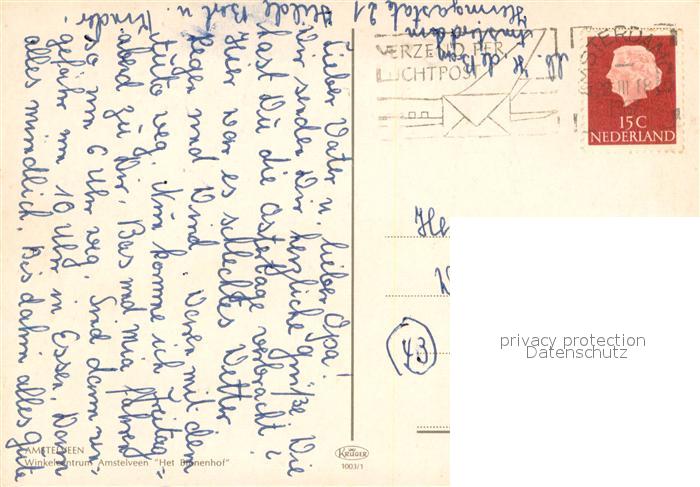 Lieber Vater u. lieber Opa!
Wir senden Dir herzliche Grüße. Wie
hast Du die Ostertage verbracht?
Hier war es schlechtes Wetter
Regen und Wind. Waren mit dem
Auto weg. Nun komme ich Freitag
abend zu Dir. Bas und Mia fahren
so um 6 Uhr weg. Sind dann un-
gefähr um 10 Uhr in Essen. Dann
alles mündlich. Bis dahin alles gute
Hilde Bert u.
Kinder.
M. H. de Bon
Amsterdam
21
VERZEND PER
LUCHTPOST
AMSTERDAM
15 C
NEDERLAND
He
W
43
privacy protection
Datenschutz
AMSTELVEEN
Winkelcentrum Amstelveen "Het Binnenhof"
KRÜGER
1003/1